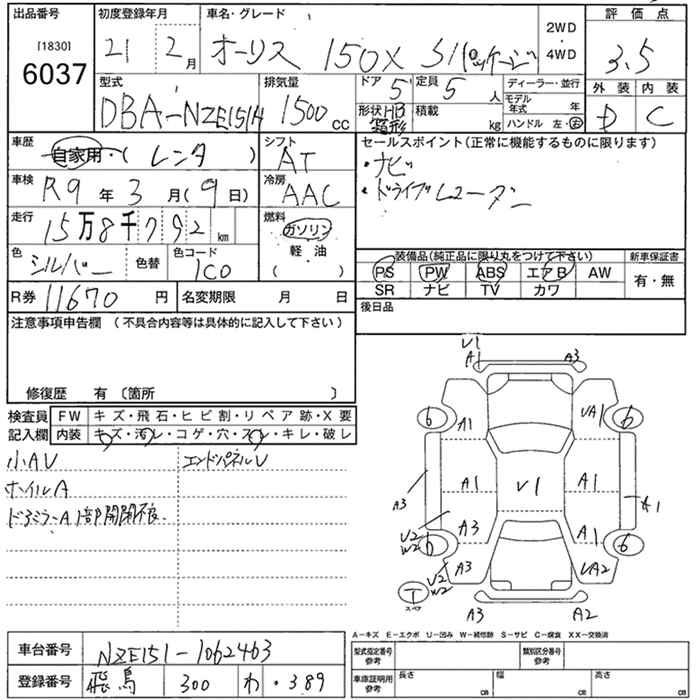 出品番号
[1830]
6037
初度登録年月
21 2月
車名・グレード
オーリス 150X Sパッケージ
2WD
4WD
評価点
3.5
外装 内装
D C
型式
DBA-NZE151H
排気量
1500cc
ドア 5
定員 5人
形状 HB
箱形
積載 kg
ディーラー・並行
モデル年式 年
ハンドル 左・右
車歴
自家用・( レンタ )
シフト
AT
セールスポイント(正常に機能するものに限ります)
・ナビ
・ドライブレコーダー
車検
R9年 3月( 9日)
冷房
AAC
走行
15万8千792km
燃料
ガソリン
軽・油
( )
色
シルバー
色替
色コード
1C0
装備品(純正品に限り丸をつけて下さい)
PS PW ABS エアB AW
SR ナビ TV カワ
新車保証書
有・無
R券 11670円
名変期限 月 日
後日品
注意事項申告欄 (不具合内容等は具体的に記入して下さい)
修復歴 有 〔箇所 〕
検査員
記入欄
FW キズ・飛石・ヒビ割・リペア跡・X要
内装 キズ・汚レ・コゲ・穴・スレ・キレ・破レ
小AU
ホイルA
ドアミラーA 1部開閉不良
エンドパネルU
V1
A1 A3
6 A1 UA1 6
A1 A1
A3 U1 A1
U2
W2
A3 A1
6 6
U2
W2
A3 UA2
T
スペア
A3 A2
A-キズ E-エクボ U-凹み W-補修跡 S-サビ C-腐食 XX-交換済
車台番号
NZE151-1062463
登録番号
飛鳥 300 わ ・389
型式指定番号
参考
類別区分番号
参考
車庫証明用
参考
長さ cm
幅 cm
高さ cm